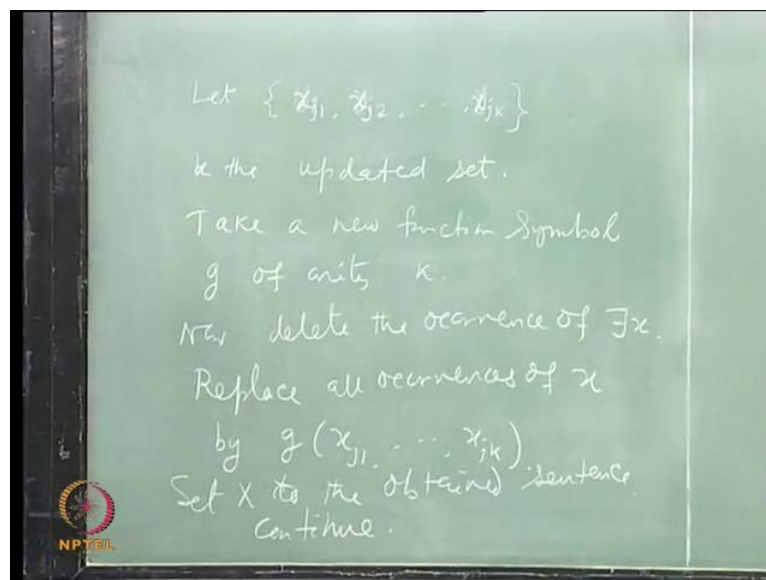 Let { x_{j1}, x_{j2}, ..., x_{jk} }
be the updated set.
Take a new function symbol
g of arity k.
Now delete the occurrence of ∃x.
Replace all occurrences of x
by g(x_{j1}, ..., x_{jk})
Set X to the obtained sentence.
continue.
NPTEL